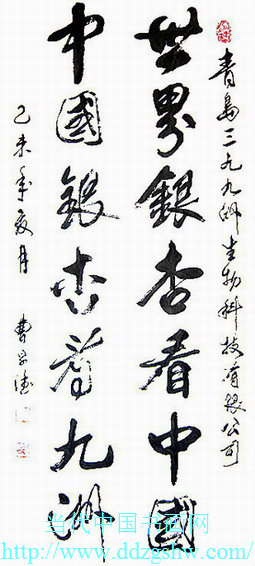 青島三九九洲生物科技有限公司
世界銀杏看中國
中國銀杏看九洲
乙未年夏月 曹
当代中国书画网
http://www.ddzgshw.com/